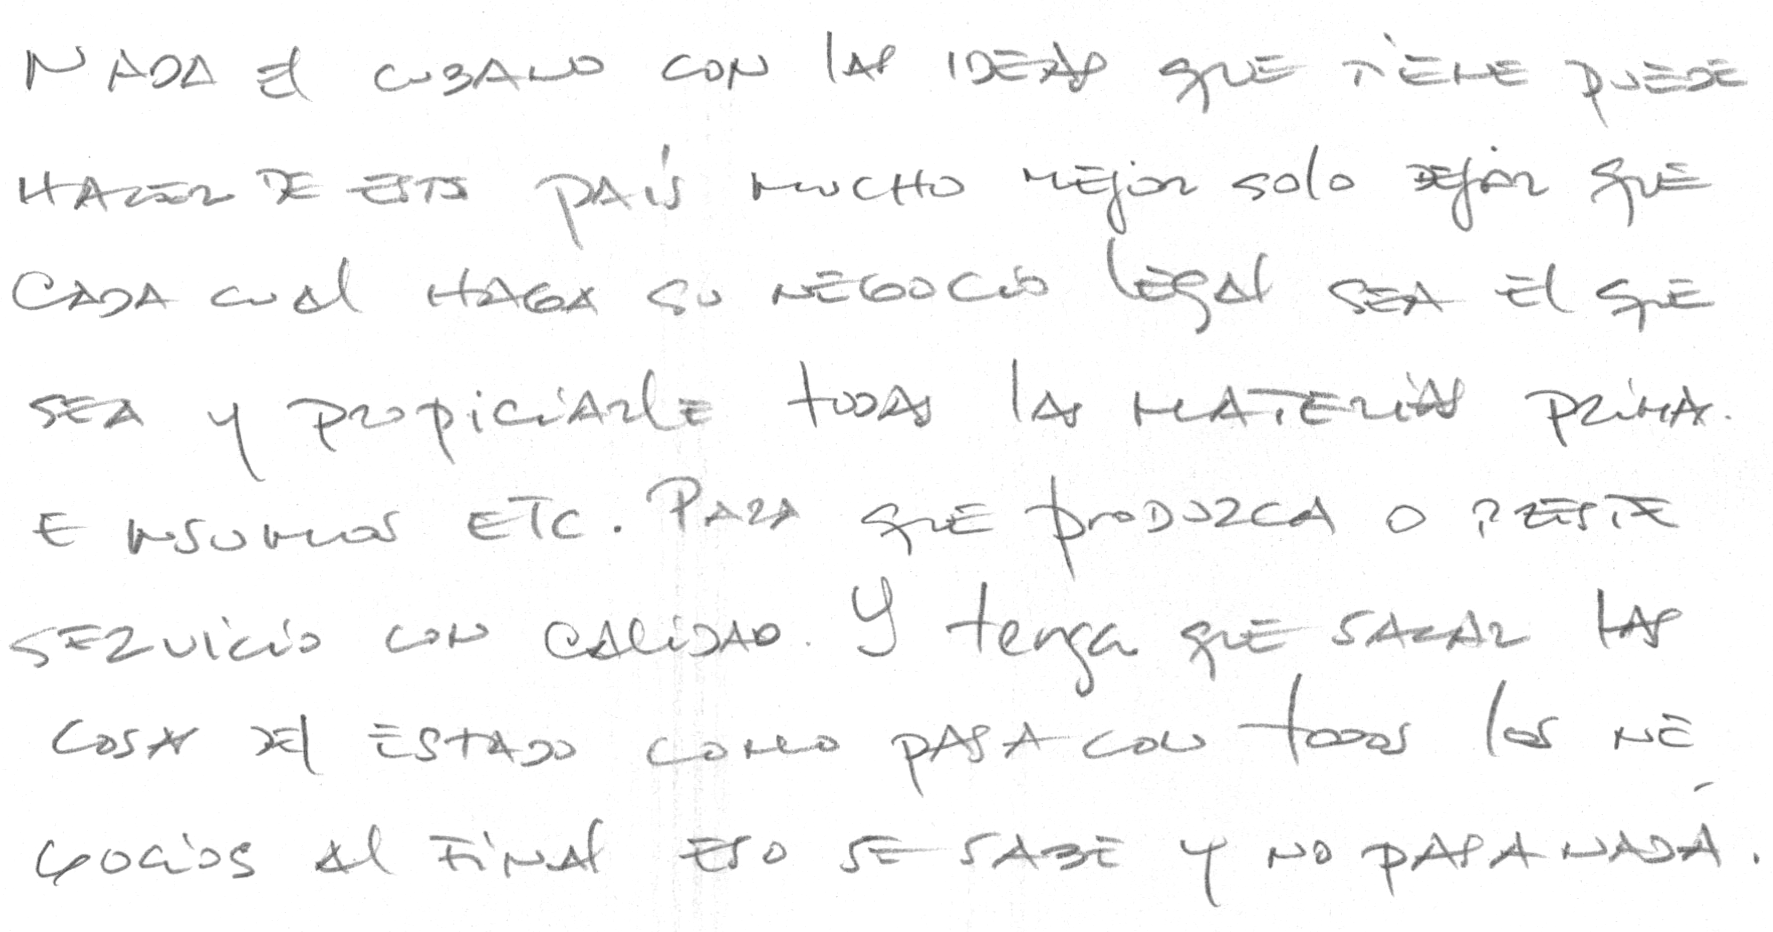 NADA El CUBANO CON lAS IDEAS QUE TIENE PUEDE
HAZER DE ESTE PAIS MUCHO MEJOR SOLO DEJAR QUE
CADA CUAL HAGA SU NEGOCIO LEGAL SEA El QUE
SEA Y PROPICIARLE TODAS LAS MATERIAS PRIMA.
E INSUMOS ETC. PARA QUE PRODUZCA O PRESTE
SERVICIO CON CALIDAD. Y tenga QUE SACAR LAS
COSAS DEL ESTADO COMO PASA CON TODOS LOS NE
GOCIOS AL FINAL ESO SE SABE Y NO PASA NADA.